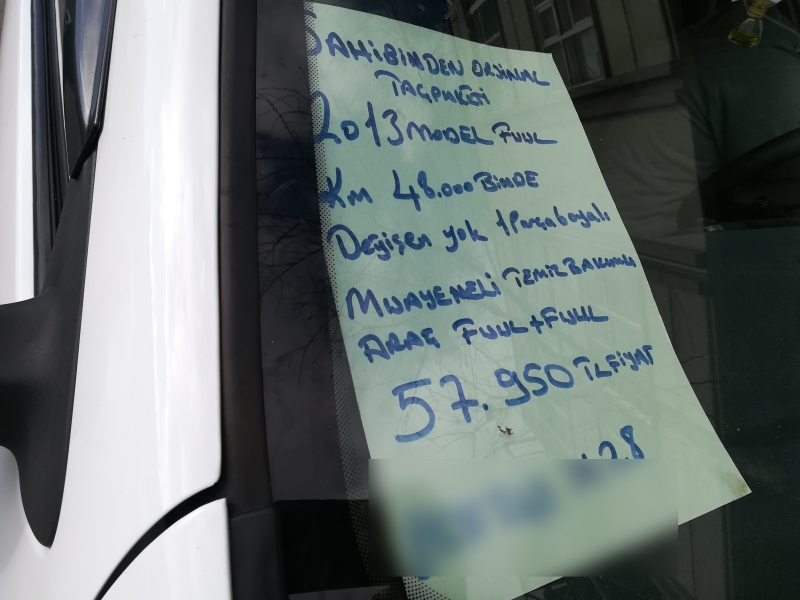 SAHİBİNDEN ORJİNAL
2013 MODEL FUUL
Km 48.000 BİNDE
Değişen yok 1 Parça boyalı
MUAYENELİ TEMİZ BAKIMLI
ARAÇ FUUL+FUUL
57.950 TL FİYAT